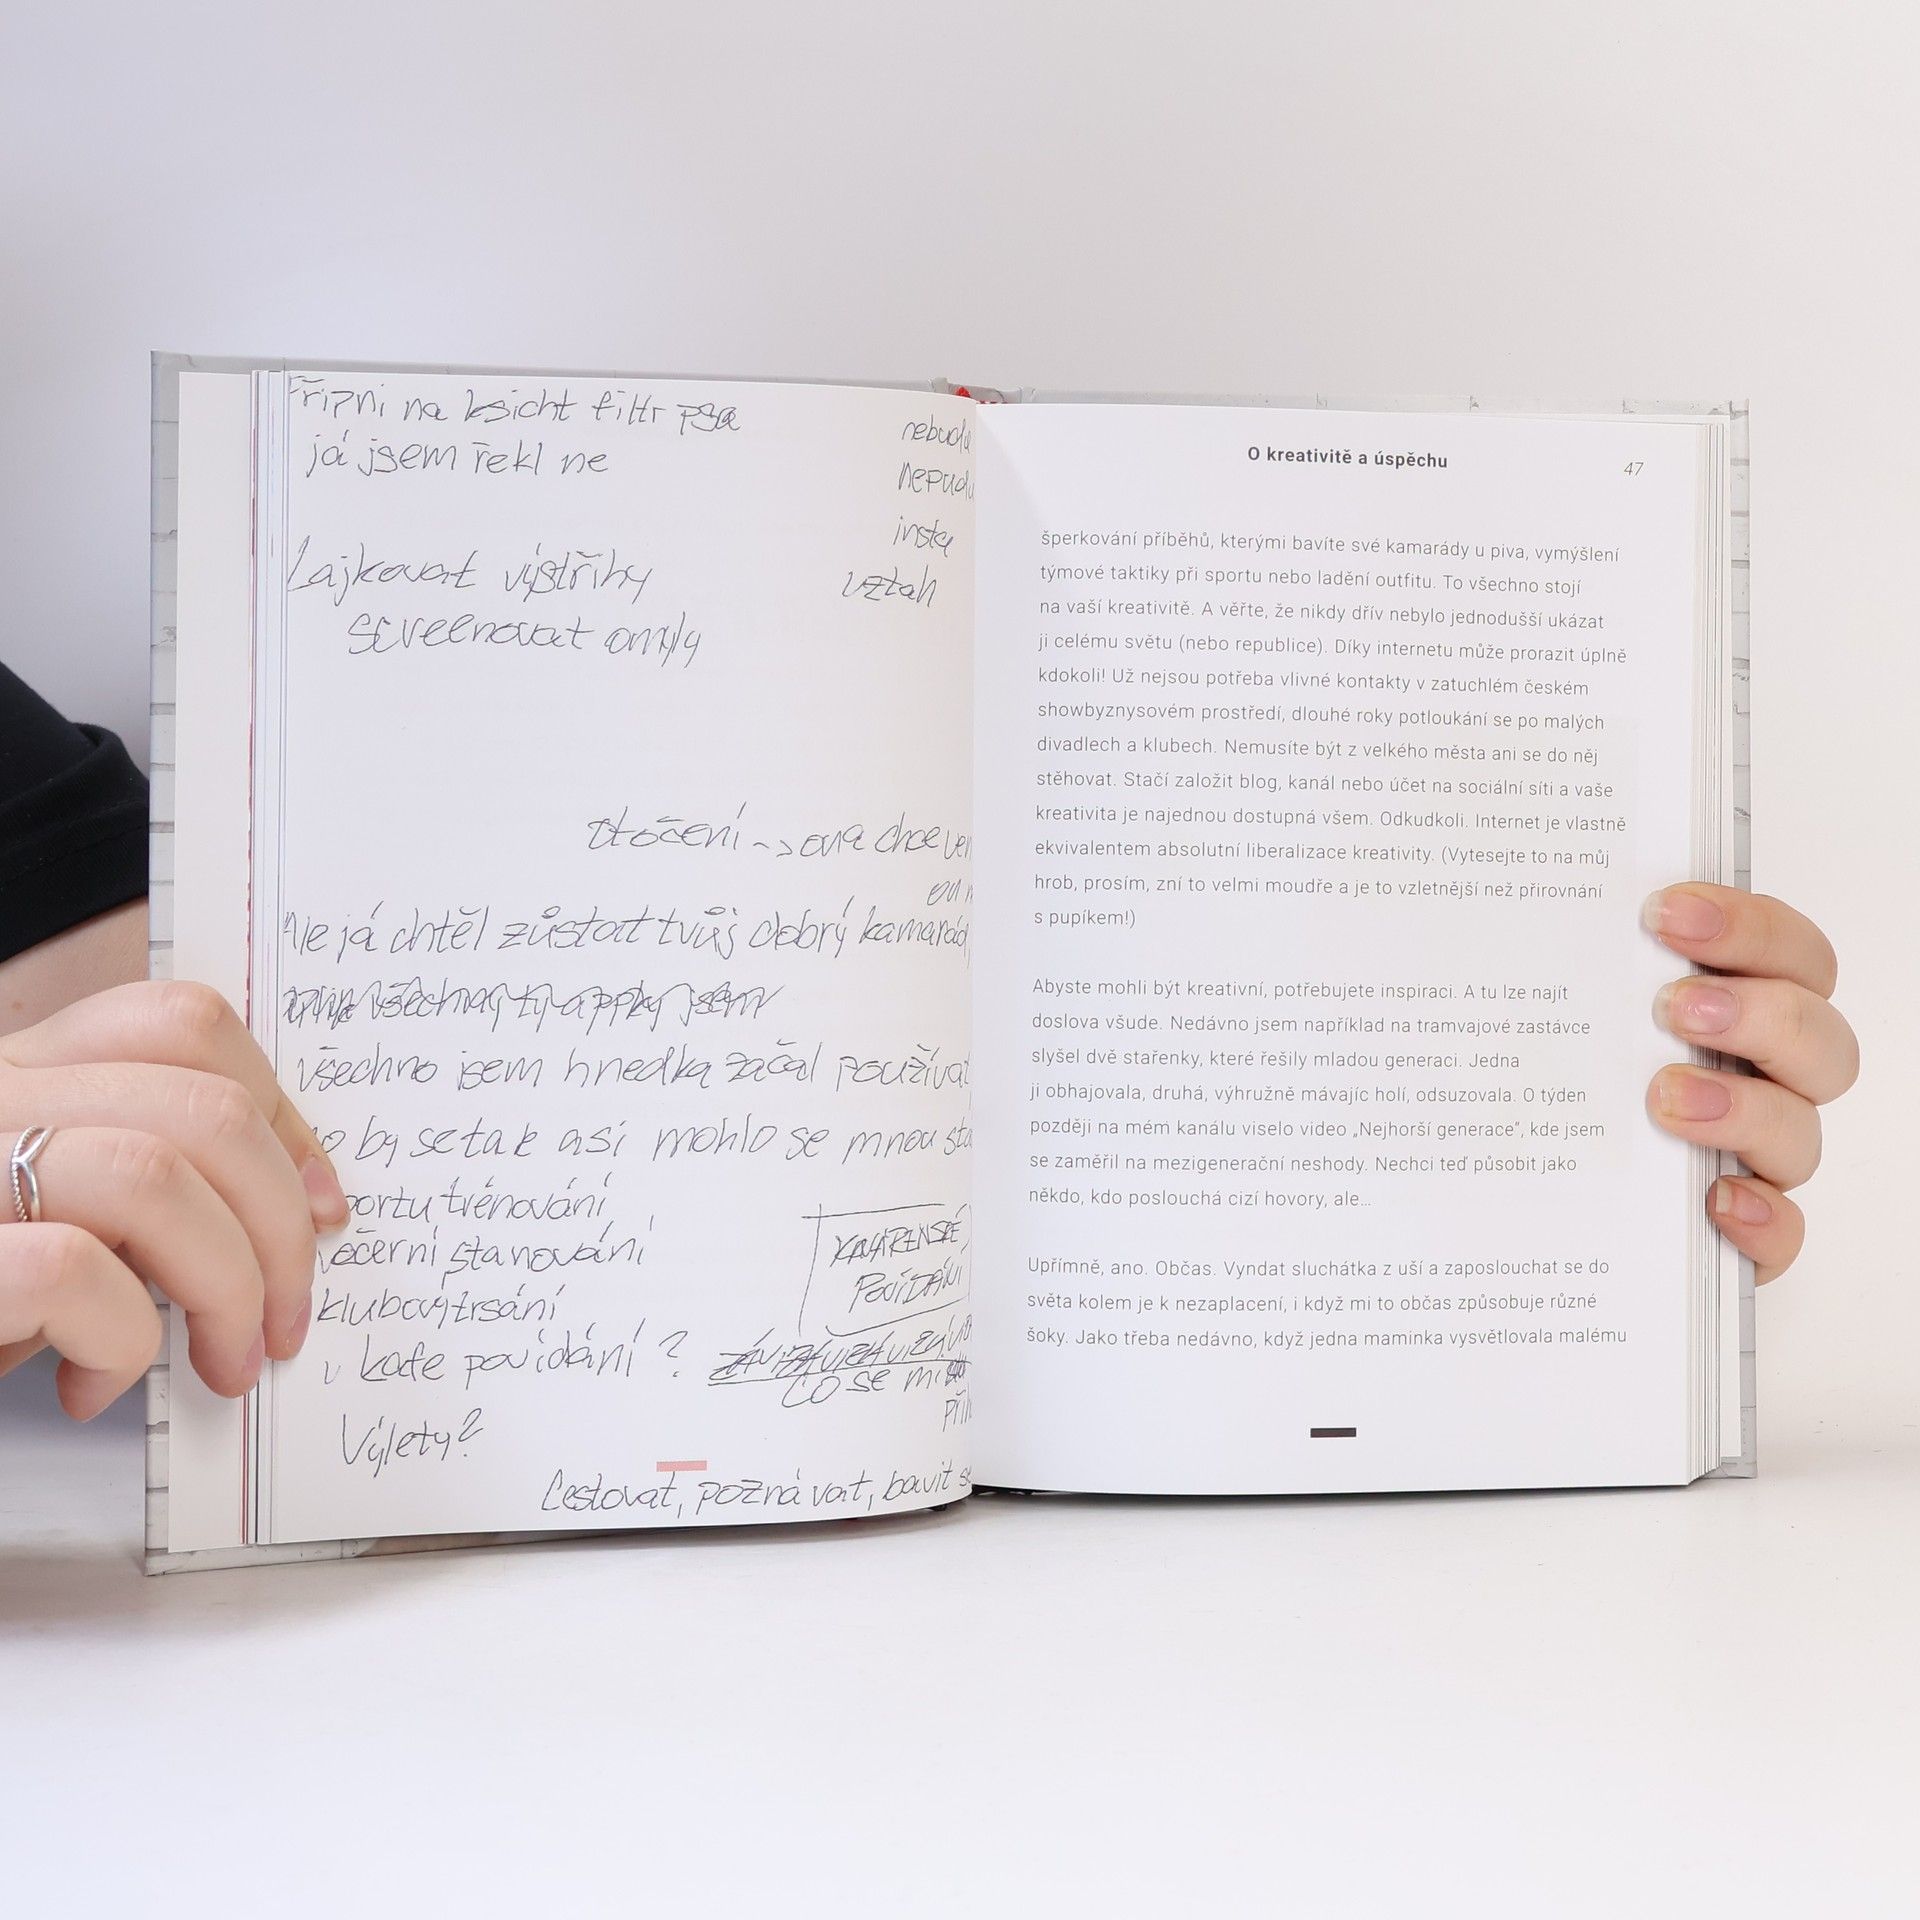 Připni na ksicht filtr psa
já jsem řekl ne
Lajkovat výstřihy
screenovat omyly
nebudu
insta
vztah
otočení -> ona chce
Ale já chtěl zůstat tvůj dobrý kamarád,
všechny ty appky jsem
všechno jsem hnedka začal používat
co by se tak asi mohlo se mnou
trénování
stanování
klubový trsání
v kafe povídání ?
KAVÁRENSKÉ
POVÍDÁNÍ
CO SE
Výlety?
Cestovat, poznávat, bavit se
O kreativitě a úspěchu
47
šperkování příběhů, kterými bavíte své kamarády u piva, vymýšlení
týmové taktiky při sportu nebo ladění outfitu. To všechno stojí
na vaší kreativitě. A věřte, že nikdy dřív nebylo jednodušší ukázat
ji celému světu (nebo republice). Díky internetu může prorazit úplně
kdokoli! Už nejsou potřeba vlivné kontakty v zatuchlém českém
showbyznysovém prostředí, dlouhé roky potloukání se po malých
divadlech a klubech. Nemusíte být z velkého města ani se do něj
stěhovat. Stačí založit blog, kanál nebo účet na sociální síti a vaše
kreativita je najednou dostupná všem. Odkudkoli. Internet je vlastně
ekvivalentem absolutní liberalizace kreativity. (Vytesejte to na můj
hrob, prosím, zní to velmi moudře a je to vzletnější než přirovnání
s pupíkem!)
Abyste mohli být kreativní, potřebujete inspiraci. A tu lze najít
doslova všude. Nedávno jsem například na tramvajové zastávce
slyšel dvě stařenky, které řešily mladou generaci. Jedna
ji obhajovala, druhá, výhružně mávajíc holí, odsuzovala. O týden
později na mém kanálu viselo video „Nejhorší generace“, kde jsem
se zaměřil na mezigenerační neshody. Nechci teď působit jako
někdo, kdo poslouchá cizí hovory, ale…
Upřímně, ano. Občas. Vyndat sluchátka z uší a zaposlouchat se do
světa kolem je k nezaplacení, i když mi to občas způsobuje různé
šoky. Jako třeba nedávno, když jedna maminka vysvětlovala malému